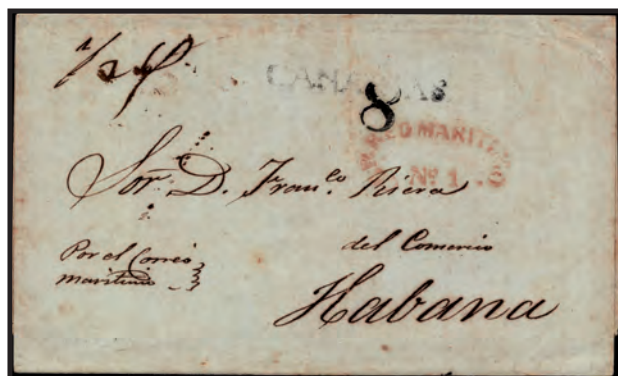 1/2
CANARIAS
8
CORREO MARITIMO
Nº 1.
Sor. D. Franco. Riera
del Comercio
Por el Correo
maritimo
Habana